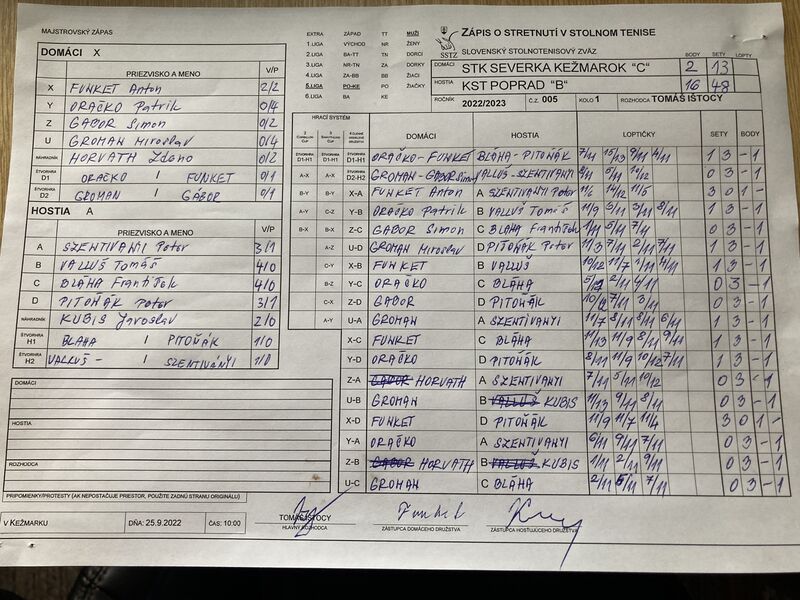 MAJSTROVSKÝ ZÁPAS
DOMÁCI X
PRIEZVISKO A MENO V/P
X FUNKET Anton 2/2
Y ORAČKO Patrik 0/4
Z GABOR Simon 0/2
U GROMAN Miroslav 0/4
NÁHRADNÍK HORVATH Zdeno 0/2
ŠTVORHRA D1 ORAČKO / FUNKET 0/1
ŠTVORHRA D2 GROMAN / GÁBOR 0/1
HOSTIA A
PRIEZVISKO A MENO V/P
A SZENTIVANYI Peter 3/1
B VALLUŠ Tomáš 4/0
C BLÁHA František 4/0
D PITOŇÁK Peter 3/1
NÁHRADNÍK KUBIS Jaroslav 2/0
ŠTVORHRA H1 BLAHA / PITOŇÁK 1/0
ŠTVORHRA H2 VALLUŠ - / SZENTIVÁNYI 1/0
DOMÁCI
HOSTIA
ROZHODCA
PRIPOMIENKY/PROTESTY (AK NEPOSTAČUJE PRIESTOR, POUŽITE ZADNÚ STRANU ORIGINÁLU)
V KEŽMARKU DŇA: 25.9.2022 ČAS: 10:00
TOMÁŠ IŠTOCY
HLAVNÝ ROZHODCA
Funket
ZÁSTUPCA DOMÁCEHO DRUŽSTVA
ZÁSTUPCA HOSŤUJÚCEHO DRUŽSTVA
EXTRA ZÁPAD TT MUŽI
1.LIGA VÝCHOD NR ŽENY
2.LIGA BA-TT TN DORCI
3.LIGA NR-TN ZA DORKY
4.LIGA ZA-BB BB ŽIACI
5.LIGA PO-KE PO ŽIAČKY
6.LIGA BA KE
SSTZ
ZÁPIS O STRETNUTÍ V STOLNOM TENISE
SLOVENSKÝ STOLNOTENISOVÝ ZVÄZ
BODY SETY LOPTY
DOMÁCI STK SEVERKA KEŽMAROK "C" 2 13
HOSTIA KST POPRAD "B" 16 48
ROČNÍK 2022/2023 Č.Z. 005 KOLO 1 ROZHODCA TOMÁŠ IŠTOCY
HRACÍ SYSTÉM
DOMÁCI HOSTIA LOPTIČKY SETY BODY
D1-H1 D1-H1 D1-H1 ORAČKO - FUNKET BLÁHA - PITOŇÁK 7/11 15/13 9/11 4/11 1 3 - 1
A-X A-X D2-H2 GROMAN - GABOR Simon VALLUŠ - SZENTIVANYI 8/11 5/11 10/12 0 3 - 1
B-Y B-Y X-A FUNKET Anton A SZENTIVANYI Peter 11/6 14/12 11/5 3 0 1 -
A-Y C-Z Y-B ORAČKO Patrik B VALLUŠ Tomáš 11/9 3/11 3/11 8/11 1 3 - 1
B-X B-X Z-C GABOR Simon C BLÁHA František 1/11 5/11 7/11 0 3 - 1
A-Z U-D GROMAN Miroslav D PITOŇÁK Peter 11/3 7/11 2/11 7/11 1 3 - 1
C-Y X-B FUNKET B VALLUŠ 10/12 11/7 2/11 4/11 1 3 - 1
B-Z Y-C ORAČKO C BLÁHA 2/11 4/11 0 3 - 1
C-X Z-D GABOR D PITOŇÁK 7/11 3/11 0 3 - 1
A-Y U-A GROMAN A SZENTIVANYI 11/7 8/11 8/11 6/11 1 3 - 1
X-C FUNKET C BLÁHA 11/13 11/9 8/11 9/11 1 3 - 1
Y-D ORAČKO D PITOŇÁK 8/11 11/9 10/12 7/11 1 3 - 1
Z-A GABOR HORVATH A SZENTIVANYI 7/11 5/11 10/12 0 3 - 1
U-B GROMAN B VALLUŠ KUBIS 11/13 9/11 8/11 0 3 - 1
X-D FUNKET D PITOŇÁK 11/9 11/7 11/4 3 0 1 -
Y-A ORAČKO A SZENTIVANYI 6/11 9/11 7/11 0 3 - 1
Z-B GABOR HORVATH B VALLUŠ KUBIS 1/11 2/11 9/11 0 3 - 1
U-C GROMAN C BLÁHA 2/11 5/11 7/11 0 3 - 1